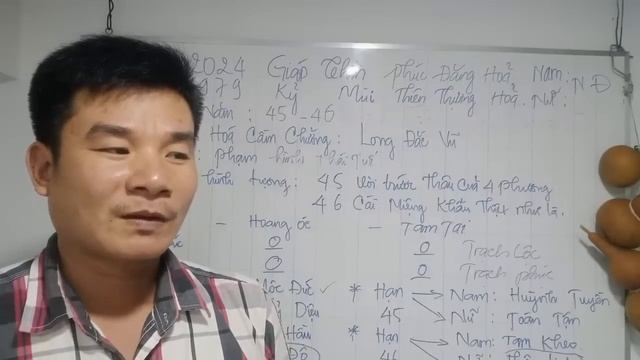 2024 Giáp Thìn Phúc Đăng Hoả Nam:
979 Kỷ Mùi Thiên Thượng Hoả. Nữ:
Năm: 45 - 46
Hoả Cầm Chưởng: Long Đắc Vũ
: Phạm
hình tượng: 45 4 phương
46 Cái Miệng Khẩu Thật như là.
- Hoang ốc - Tam Tai
0 0 Trạch Lộc
0 0 Trạch phúc
Lộc Đức ✓ * Hạn Nam: Huỳnh Tuyền
Diệu 45 Nữ: Toán Tận
Hầu * Hạn Nam: Tam Kheo
Đô 46